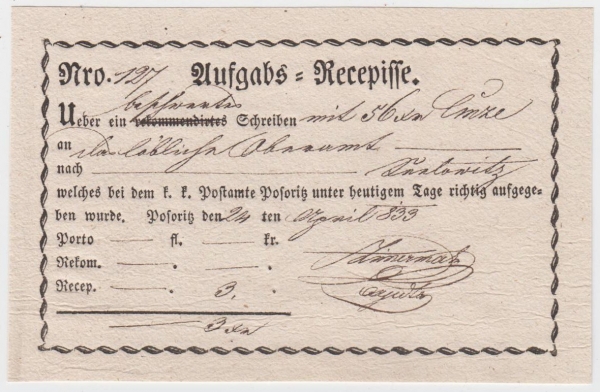 Nro. 127 Aufgabs = Recepisse.
beschwertes
Ueber ein rekommendirtes Schreiben mit 56 xr
an das löbliche Oberamt
nach Seelowitz
welches bei dem k. k. Postamte Pohoritz unter heutigem Tage richtig aufgege-
ben wurde. Pohoritz den 24 ten April 833
Porto fl. kr.
Rekom. . .
Recep. . 3. .
3 xr